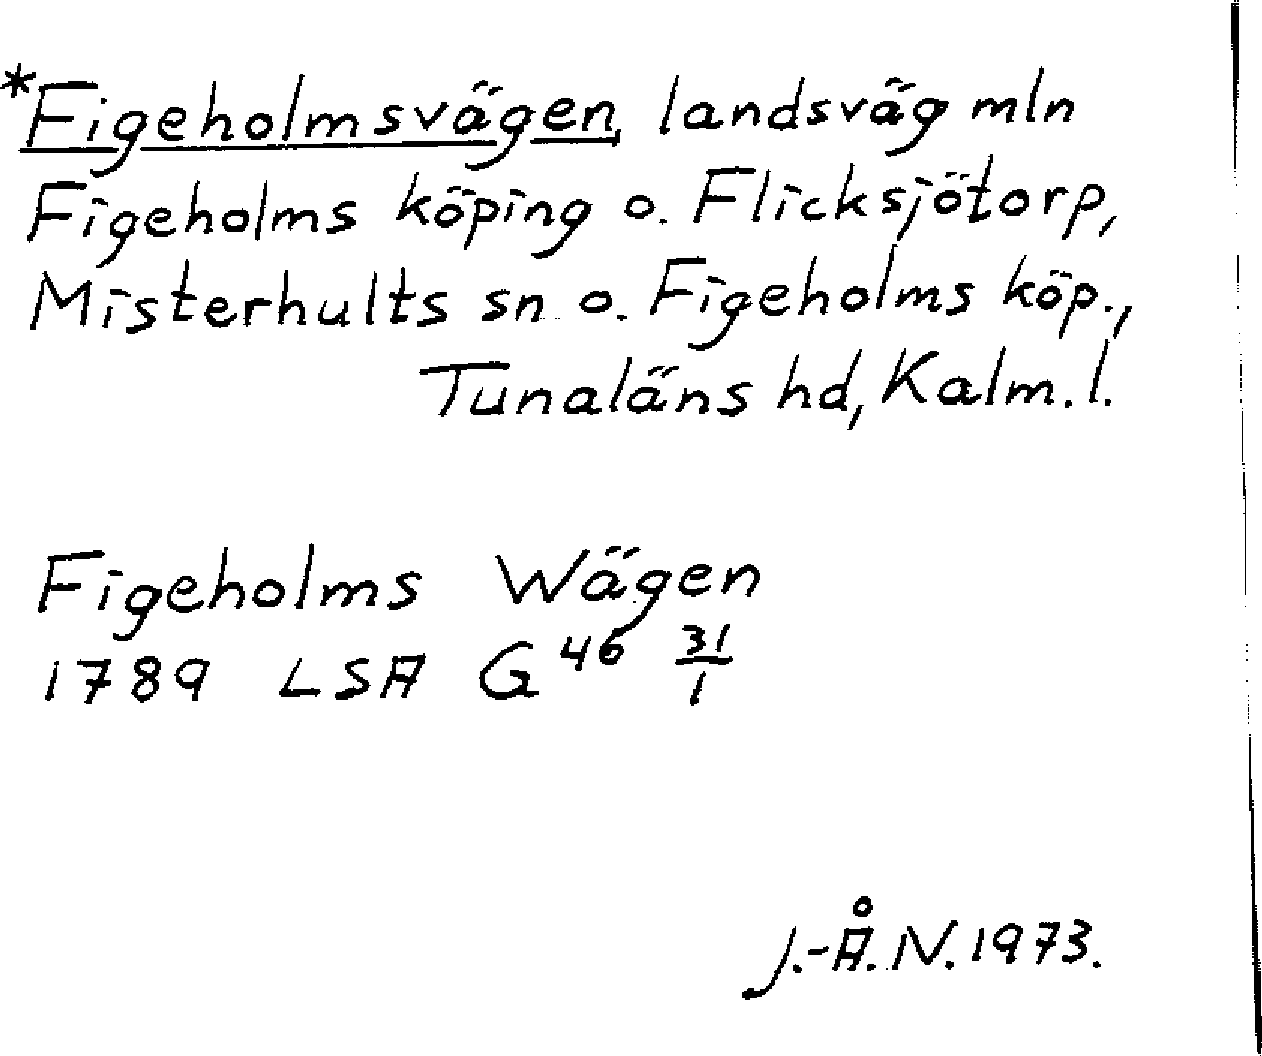 *Figeholmsvägen, landsväg mln
Figeholms köping o. Flicksjötorp,
Misterhults sn o. Figeholms köp.,
Tunaläns hd, Kalm. l.
Figeholms Wägen
1789 LSA G 46 31/1
J.-Å. N. 1973.